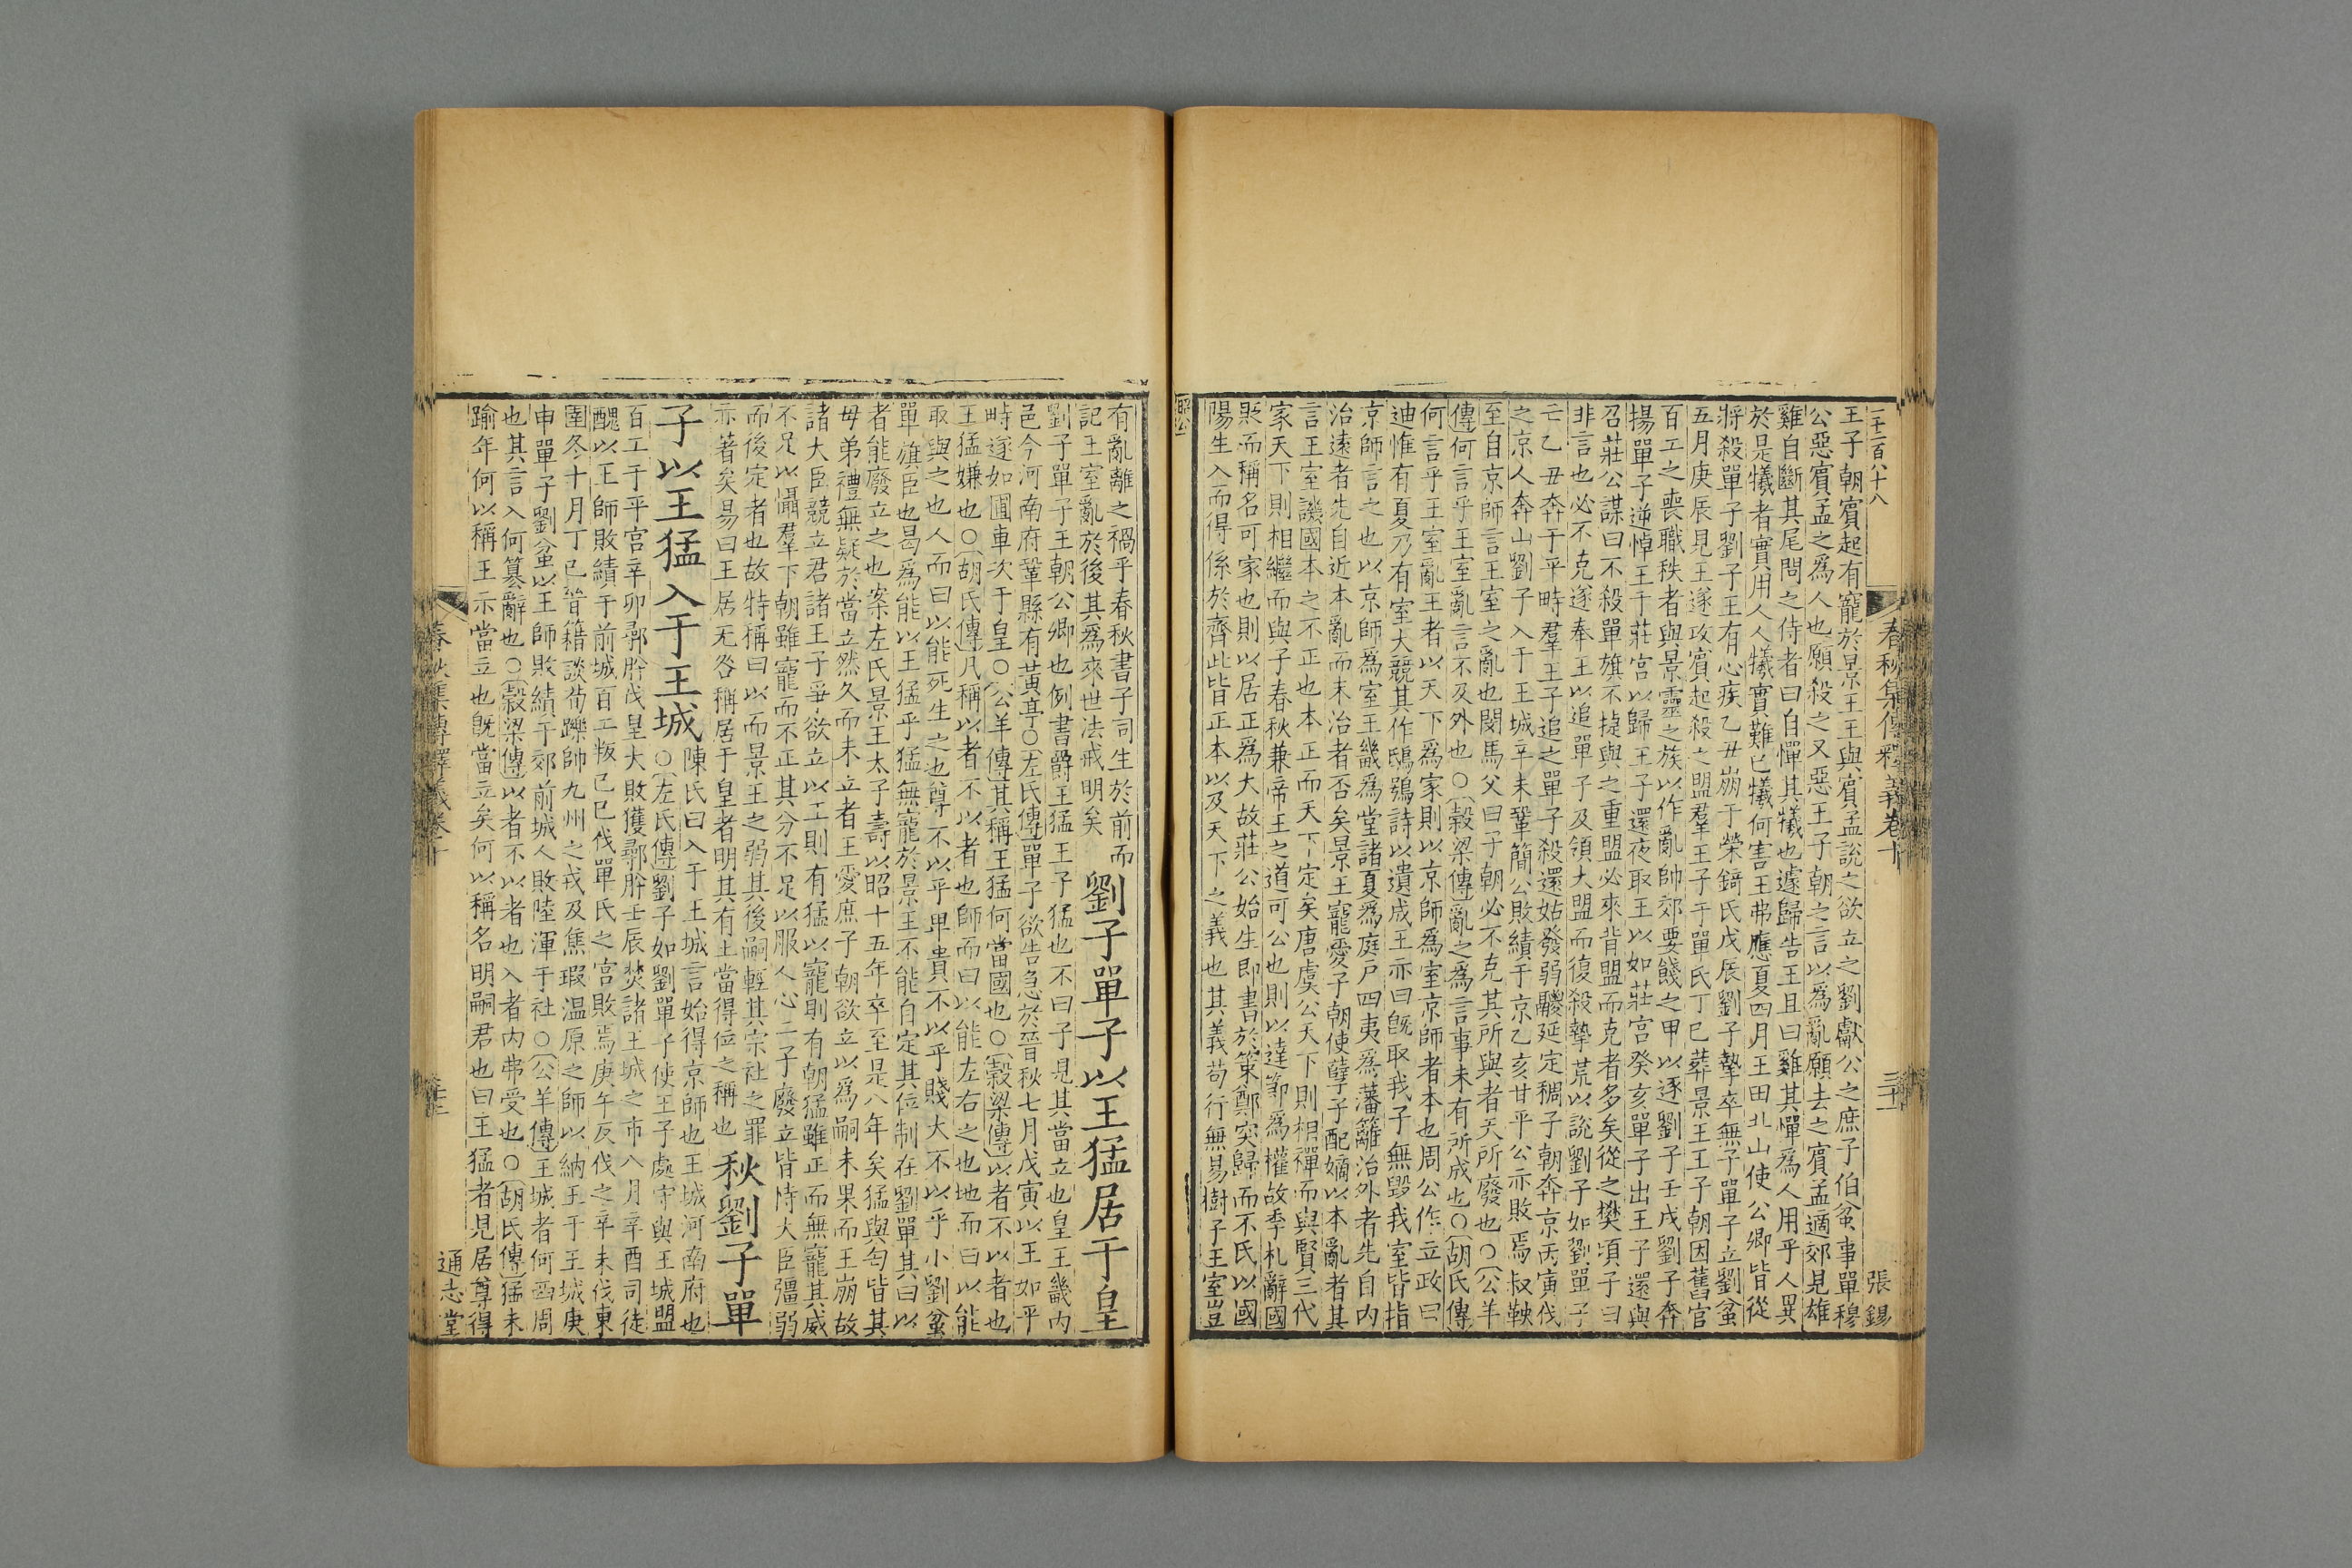 一千二百八十八
春秋集傳釋義卷十　三十一　張錫
王子朝賓起有寵於景王王與賓孟說之欲立之劉獻公之庶子伯蚠事單穆
公惡賓孟之為人也願殺之又惡王子朝之言以為亂願去之賓孟適郊見雄
雞自斷其尾問之侍者曰自憚其犧也遽歸告王且曰雞其憚為人用乎人異
於是犧者實用人人犧實難已犧何害王弗應夏四月王田北山使公卿皆從
將殺單子劉子王有心疾乙丑崩于榮錡氏戊辰劉子摯卒無子單子立劉蚠
五月庚辰見王遂攻賓起殺之盟羣王子于單氏丁巳葬景王王子朝因舊官
百工之喪職秩者與景靈之族以作亂帥郊要餞之甲以逐劉子壬戌劉子奔
揚單子逆悼王于莊宮以歸王子還夜取王以如莊宮癸亥單子出王子還與
召莊公謀曰不殺單旗不捷與之重盟必來背盟而克者多矣從之樊頃子曰
非言也必不克遂奉王以追單子及領大盟而復殺摯荒以說劉子如劉單子
亡乙丑奔于平畤羣王子追之單子殺還姑發弱鬷延定稠子朝奔京丙寅伐
之京人奔山劉子入于王城辛未鞏簡公敗績于京乙亥甘平公亦敗焉叔鞅
至自京師言王室之亂也閔馬父曰子朝必不克其所與者天所廢也○公羊
傳何言乎王室亂言不及外也○穀梁傳亂之為言事未有所成也○胡氏傳
何言乎王室亂王者以天下為家則以京師為室京師者本也周公作立政曰
迪惟有夏乃有室大競其作鴟鴞詩以遺成王亦曰旣取我子無毀我室皆指
京師言之也以京師為室王畿為堂諸夏為庭戶四夷為藩籬治外者先自內
治遠者先自近本亂而末治者否矣景王寵愛子朝使孽子配嫡以本亂者其
言王室譏國本之不正也本正而天下定矣唐虞公天下則相禪而與賢三代
家天下則相繼而與子春秋兼帝王之道可公也則以達節為權故季札辭國
貶而稱名可家也則以居正為大故莊公始生即書於策鄭突歸而不氏以國
陽生入而得係於齊此皆正本以及天下之義也其義苟行無易樹子王室豈
有亂離之禍乎春秋書子司生於前而
記王室亂於後其為來世法戒明矣　劉子單子以王猛居于皇
劉子單子王朝公卿也例書爵王猛王子猛也不曰子見其當立也皇王畿內
邑今河南府鞏縣有黃亭○左氏傳單子欲告急於晉秋七月戊寅以王如平
畤遂如圃車次于皇○公羊傳其稱王猛何當國也○穀梁傳以者不以者也
王猛嫌也○胡氏傳凡稱以者不以者也師而曰以能左右之也地而曰以能
取與之也人而曰以能死生之也尊不以乎卑貴不以乎賤大不以乎小劉蚠
單旗臣也曷為能以王猛乎猛無寵於景王不能自定其位制在劉單其曰以
者能廢立之也案左氏景王太子壽以昭十五年卒至是八年矣猛與匄皆其
母弟禮無疑於當立然久而未立者王愛庶子朝欲立以為嗣未果而王崩故
諸大臣競立君諸王子爭欲立以正則有猛以寵則有朝猛雖正而無寵其威
不足以懾羣下朝雖寵而不正其分不足以服人心二子廢立皆恃大臣彊弱
而後定者也故特稱曰以而景王之弱其後嗣輕其宗社之罪
亦著矣易曰王居无咎稱居于皇者明其有土當得位之稱也　秋劉子單
子以王猛入于王城　陳氏曰入于王城言始得京師也王城河南府也
○左氏傳劉子如劉單子使王子處守與王城盟
百工于平宮辛卯鄩肸伐皇大敗獲鄩肸壬辰焚諸王城之市八月辛酉司徒
醜以王師敗績于前城百工叛己巳伐單氏之宮敗焉庚午反伐之辛未伐東
圉冬十月丁巳晉籍談荀躒帥九州之戎及焦瑕温原之師以納王于王城庚
申單子劉蚠以王師敗績于郊前城人敗陸渾于社○公羊傳王城者何西周
也其言入何篡辭也○穀梁傳以者不以者也入者內弗受也○胡氏傳猛未
踰年何以稱王示當立也旣當立矣何以稱名明嗣君也曰王猛者見居尊得
春秋集傳釋義卷十　通志堂